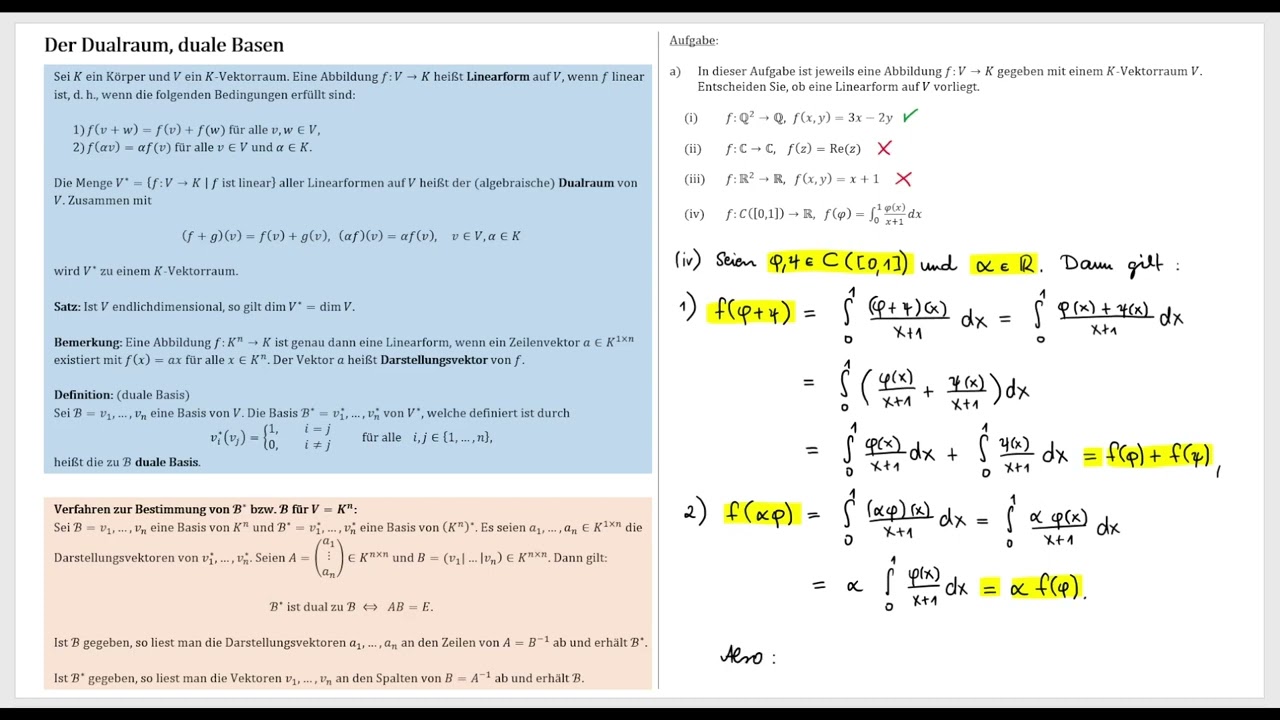 Der Dualraum, duale Basen
Sei K ein Körper und V ein K-Vektorraum. Eine Abbildung f: V → K heißt Linearform auf V, wenn f linear
ist, d. h., wenn die folgenden Bedingungen erfüllt sind:
1) f(v + w) = f(v) + f(w) für alle v, w ∈ V,
2) f(αv) = αf(v) für alle v ∈ V und α ∈ K.
Die Menge V* = {f: V → K | f ist linear} aller Linearformen auf V heißt der (algebraische) Dualraum von
V. Zusammen mit
(f + g)(v) = f(v) + g(v), (αf)(v) = αf(v), v ∈ V, α ∈ K
wird V* zu einem K-Vektorraum.
Satz: Ist V endlichdimensional, so gilt dim V* = dim V.
Bemerkung: Eine Abbildung f: Kⁿ → K ist genau dann eine Linearform, wenn ein Zeilenvektor a ∈ K^{1×n}
existiert mit f(x) = ax für alle x ∈ Kⁿ. Der Vektor a heißt Darstellungsvektor von f.
Definition: (duale Basis)
Sei ℬ = v₁, … , vₙ eine Basis von V. Die Basis ℬ* = v₁*, … , vₙ* von V*, welche definiert ist durch
vᵢ*(vⱼ) = {1, i = j
0, i ≠ j für alle i, j ∈ {1, … , n},
heißt die zu ℬ duale Basis.
Verfahren zur Bestimmung von ℬ* bzw. ℬ für V = Kⁿ:
Sei ℬ = v₁, … , vₙ eine Basis von Kⁿ und ℬ* = v₁*, … , vₙ* eine Basis von (Kⁿ)*. Es seien a₁, … , aₙ ∈ K^{1×n} die
Darstellungsvektoren von v₁*, … , vₙ*. Seien A = (a₁ ⋮ aₙ) ∈ K^{n×n} und B = (v₁| … |vₙ) ∈ K^{n×n}. Dann gilt:
ℬ* ist dual zu ℬ ⇔ AB = E.
Ist ℬ gegeben, so liest man die Darstellungsvektoren a₁, … , aₙ an den Zeilen von A = B⁻¹ ab und erhält ℬ*.
Ist ℬ* gegeben, so liest man die Vektoren v₁, … , vₙ an den Spalten von B = A⁻¹ ab und erhält ℬ.
Aufgabe:
a) In dieser Aufgabe ist jeweils eine Abbildung f: V → K gegeben mit einem K-Vektorraum V.
Entscheiden Sie, ob eine Linearform auf V vorliegt.
(i) f: ℚ² → ℚ, f(x, y) = 3x − 2y ✓
(ii) f: ℂ → ℂ, f(z) = Re(z) ✗
(iii) f: ℝ² → ℝ, f(x, y) = x + 1 ✗
(iv) f: C([0,1]) → ℝ, f(φ) = ∫₀¹ φ(x)/(x+1) dx
(iv) Seien φ,ψ ∈ C([0,1]) und α ∈ ℝ. Dann gilt :
1) f(φ+ψ) = ∫₀¹ (φ+ψ)(x)/(x+1) dx = ∫₀¹ (φ(x) + ψ(x))/(x+1) dx
= ∫₀¹ (φ(x)/(x+1) + ψ(x)/(x+1)) dx
= ∫₀¹ φ(x)/(x+1) dx + ∫₀¹ ψ(x)/(x+1) dx = f(φ) + f(ψ),
2) f(αφ) = ∫₀¹ (αφ)(x)/(x+1) dx = ∫₀¹ α φ(x)/(x+1) dx
= α ∫₀¹ φ(x)/(x+1) dx = α f(φ).
Also :